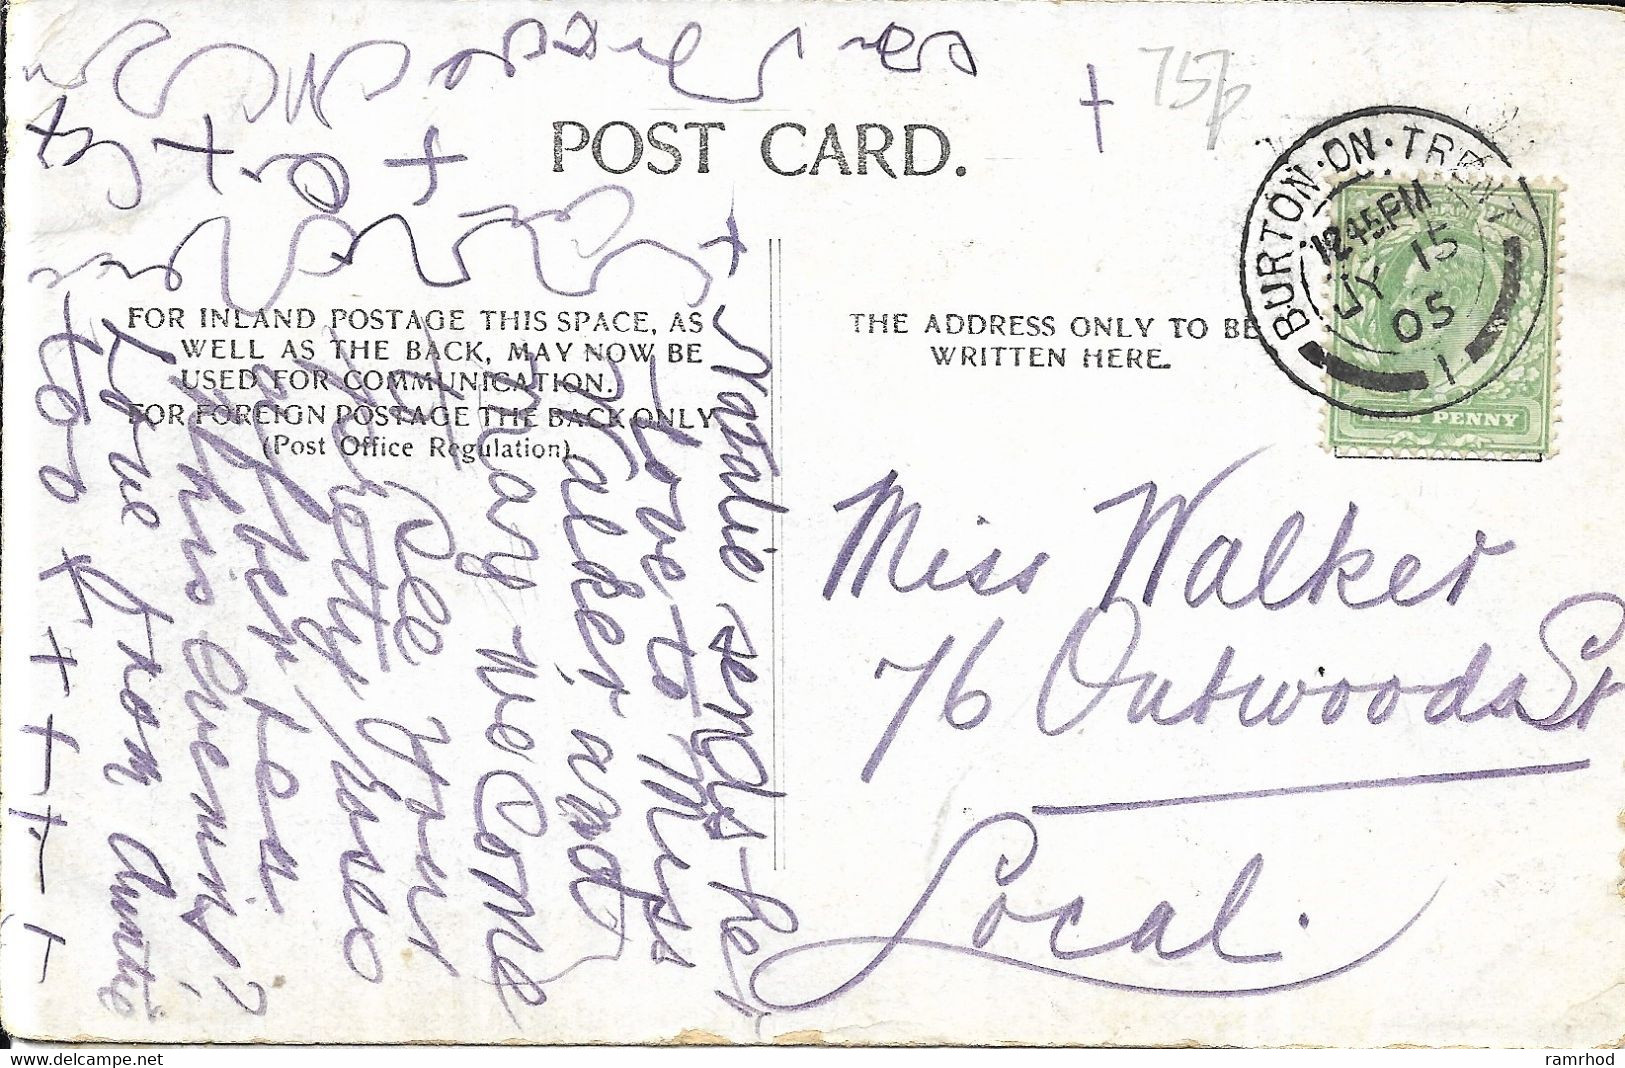 75p
POST CARD.
BURTON·ON·TRENT
12.45PM
JY 15
05
1
HALF PENNY
FOR INLAND POSTAGE THIS SPACE, AS
WELL AS THE BACK, MAY NOW BE
USED FOR COMMUNICATION.
FOR FOREIGN POSTAGE THE BACK ONLY
(Post Office Regulation).
THE ADDRESS ONLY TO BE
WRITTEN HERE.
Miss Walker
76 Outwoods St
Local.
+ Natalie sends her
love to Miss
Walker and
may we come
see your
pretty
after tea
this evening?
Love from Auntie
ramrhod